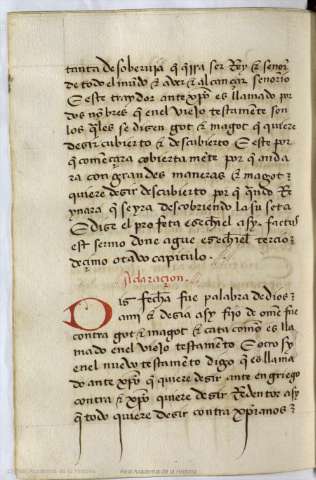 tanta de soberuja q̃ q̃rra ser Rey ⁊ señor
de todo el mũdo ⁊ aver ⁊ alcançar señorio
E este traydor ante xp̃o es llamado por
dos nõbres q̃ enel viejo testamẽte son
los q̃les se dizen got ⁊ magot q̃ quiere
dezir cubierto ⁊ descubierto E este por
q̃ comẽçara cobierta mẽte por q̃ anda
ra con grandes maneras ⁊ magot
quiere dezir descubierto por q̃ quãdo Re
ynara q̃ se yra descobriendo la su seta
E dize el profeta ezechiel asy. factus
est sermo done ague ezechiel tercio
deçimo otavo capitulo.
aclaraçion.
Dis fecha fue palabra de dios
a mi ⁊ dezia asy fijo de ome fue
contra got ⁊ magot ⁊ cata comõ es lla
mado enel viejo testamẽto E otro sy
enel nuevo testamẽto digo q̃ es llama
do ante xp̃o q̃ quiere dezir ante en griego
contra ⁊ xp̃o quiere dezir Redentor asy
q̃ todo quiere dezir contra xp̃ianos
Real Academia de la Historia